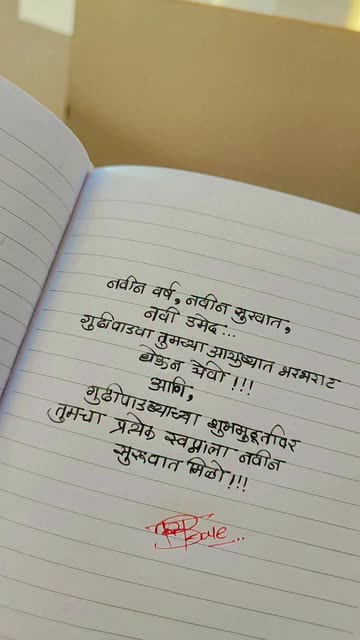 नवीन वर्ष, नवीन सुरवात,
नवी उमेद...
गुढीपाडवा तुमच्या आयुष्यात भरभराट
घेऊन येवो!!!
आणि,
गुढीपाडव्याच्या शुभमुहूर्तावर
तुमचा प्रत्येक स्वप्नाला नवीन
सुरूवात मिळो!!!